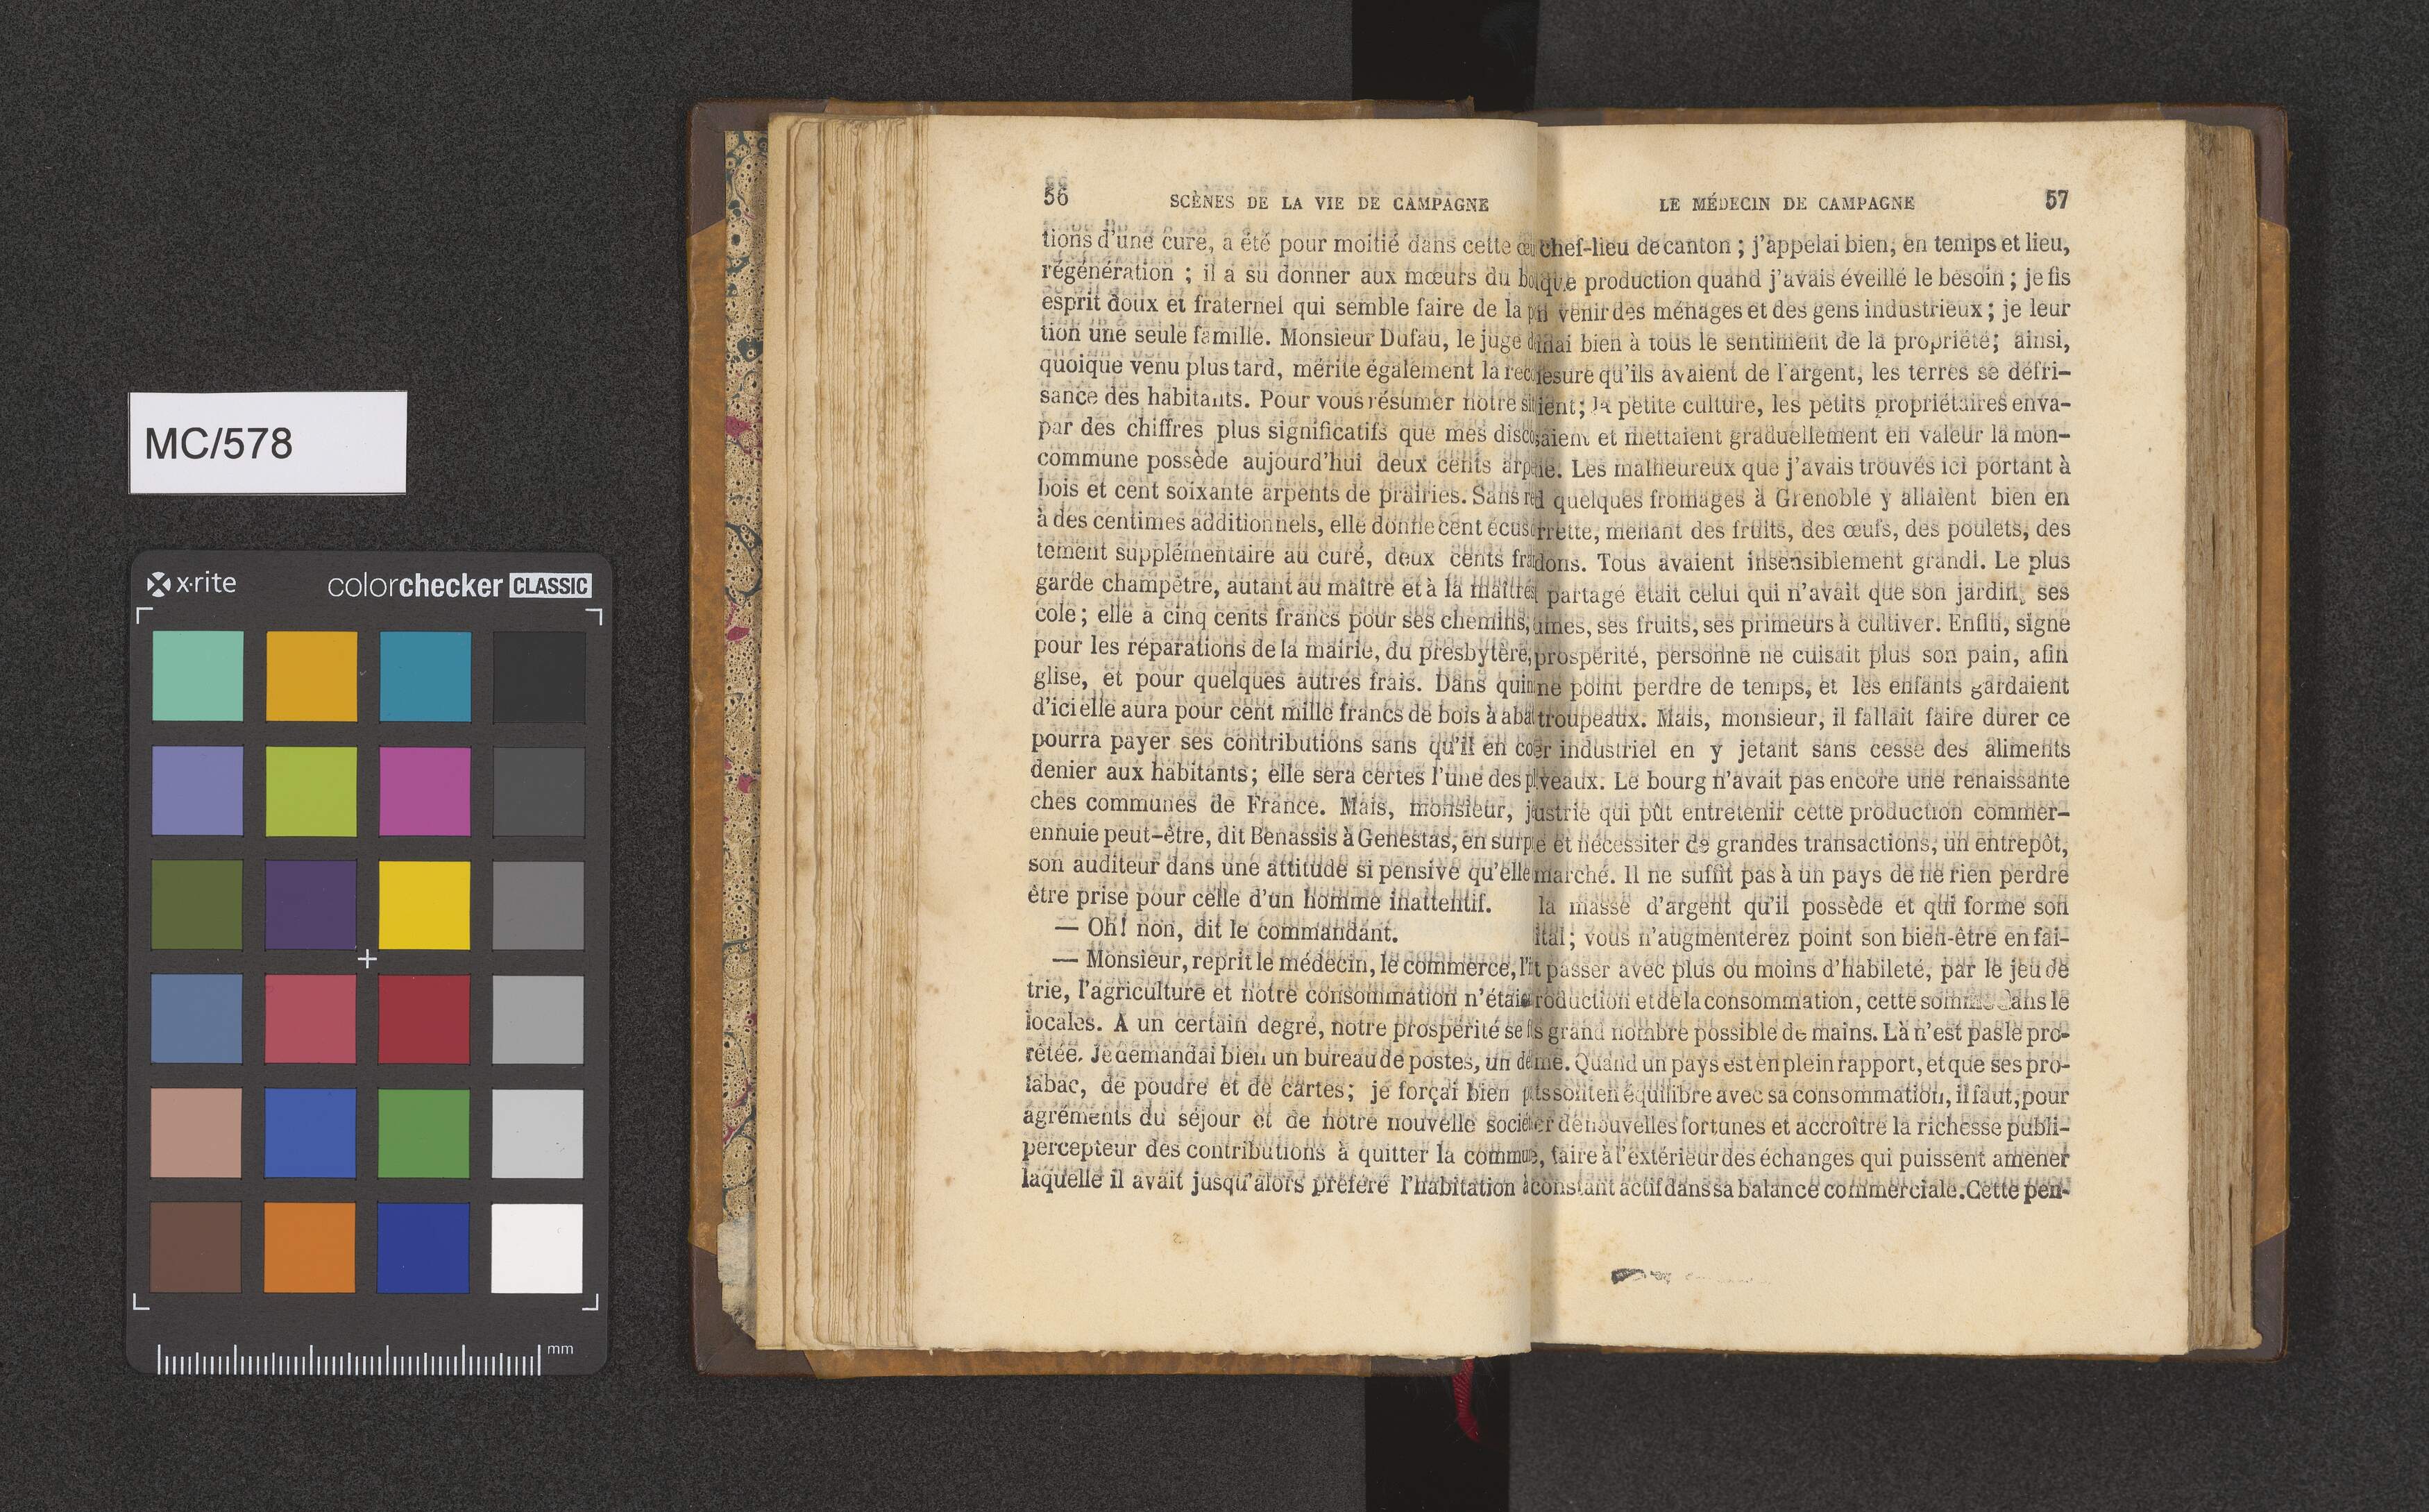 MC/578
x·rite
colorchecker CLASSIC
mm
56
SCÈNES DE LA VIE DE CAMPAGNE
tions d'une cure, a été pour moitié dans cette
régénération ; il a su donner aux mœurs du
esprit doux et fraternel qui semble faire de la
tion une seule famille. Monsieur Dufau, le juge
quoique venu plus tard, mérite également la
sance des habitants. Pour vous résumer notre
par des chiffres plus significatifs que mes
commune possède aujourd'hui deux cents
bois et cent soixante arpents de prairies. Sans
à des centimes additionnels, elle donne cent écus
tement supplémentaire au curé, deux cents
garde champêtre, autant au maître et à la
cole ; elle a cinq cents francs pour ses chemins,
pour les réparations de la mairie, du presbytère,
glise, et pour quelques autres frais. Dans
d'ici elle aura pour cent mille francs de bois à
pourra payer ses contributions sans qu'il en
denier aux habitants ; elle sera certes l'une des
ches communes de France. Mais, monsieur,
ennuie peut-être, dit Benassis à Genestas, en
son auditeur dans une attitude si pensive qu'elle
être prise pour celle d'un homme inattentif.
— Oh! non, dit le commandant.
— Monsieur, reprit le médecin, le commerce,
trie, l'agriculture et notre consommation
locales. A un certain degré, notre prospérité se
rêtée. Je demandai bien un bureau de postes, un
tabac, de poudre et de cartes ; je forçai bien
agréments du séjour et de notre nouvelle
percepteur des contributions à quitter la
laquelle il avait jusqu'alors préféré l'habitation
LE MÉDECIN DE CAMPAGNE
57
chef-lieu de canton ; j'appelai bien, en temps et lieu,
production quand j'avais éveillé le besoin ; je fis
venir des ménages et des gens industrieux ; je leur
bien à tous le sentiment de la propriété ; ainsi,
qu'ils avaient de l'argent, les terres se défri-
la petite culture, les petits propriétaires enva-
et mettaient graduellement en valeur la mon-
Les malheureux que j'avais trouvés ici portant à
quelques fromages à Grenoble y allaient bien en
menant des fruits, des œufs, des poulets, des
Tous avaient insensiblement grandi. Le plus
partagé était celui qui n'avait que son jardin, ses
ses fruits, ses primeurs à cultiver. Enfin, signe
prospérité, personne ne cuisait plus son pain, afin
ne point perdre de temps, et les enfants gardaient
troupeaux. Mais, monsieur, il fallait faire durer ce
industriel en y jetant sans cesse des aliments
Le bourg n'avait pas encore une renaissante
qui pût entretenir cette production commer-
et nécessiter de grandes transactions, un entrepôt,
marché. Il ne suffit pas à un pays de ne rien perdre
la masse d'argent qu'il possède et qui forme son
vous n'augmenterez point son bien-être en fai-
passer avec plus ou moins d'habileté, par le jeu de
et de la consommation, cette somme dans le
grand nombre possible de mains. Là n'est pas le pro-
Quand un pays est en plein rapport, et que ses pro-
sont en équilibre avec sa consommation, il faut, pour
de nouvelles fortunes et accroître la richesse publi-
faire à l'extérieur des échanges qui puissent amener
constant actif dans sa balance commerciale. Cette pen-